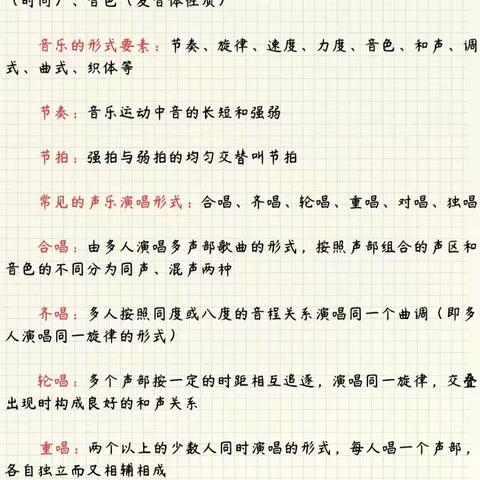 （时间）、音色（发音体性质）
音乐的形式要素：节奏、旋律、速度、力度、音色、和声、调
式、曲式、织体等
节奏：音乐运动中音的长短和强弱
节拍：强拍与弱拍的均匀交替叫节拍
常见的声乐演唱形式：合唱、齐唱、轮唱、重唱、对唱、独唱
合唱：由多人演唱多声部歌曲的形式，按照声部组合的声区和
音色的不同分为同声、混声两种
齐唱：多人按照同度或八度的音程关系演唱同一个曲调（即多
人演唱同一旋律的形式）
轮唱：多个声部按一定的时距相互追逐，演唱同一旋律，交叠
出现时构成良好的和声关系
重唱：两个以上的少数人同时演唱的形式，每人唱一个声部，
各自独立而又相辅相成